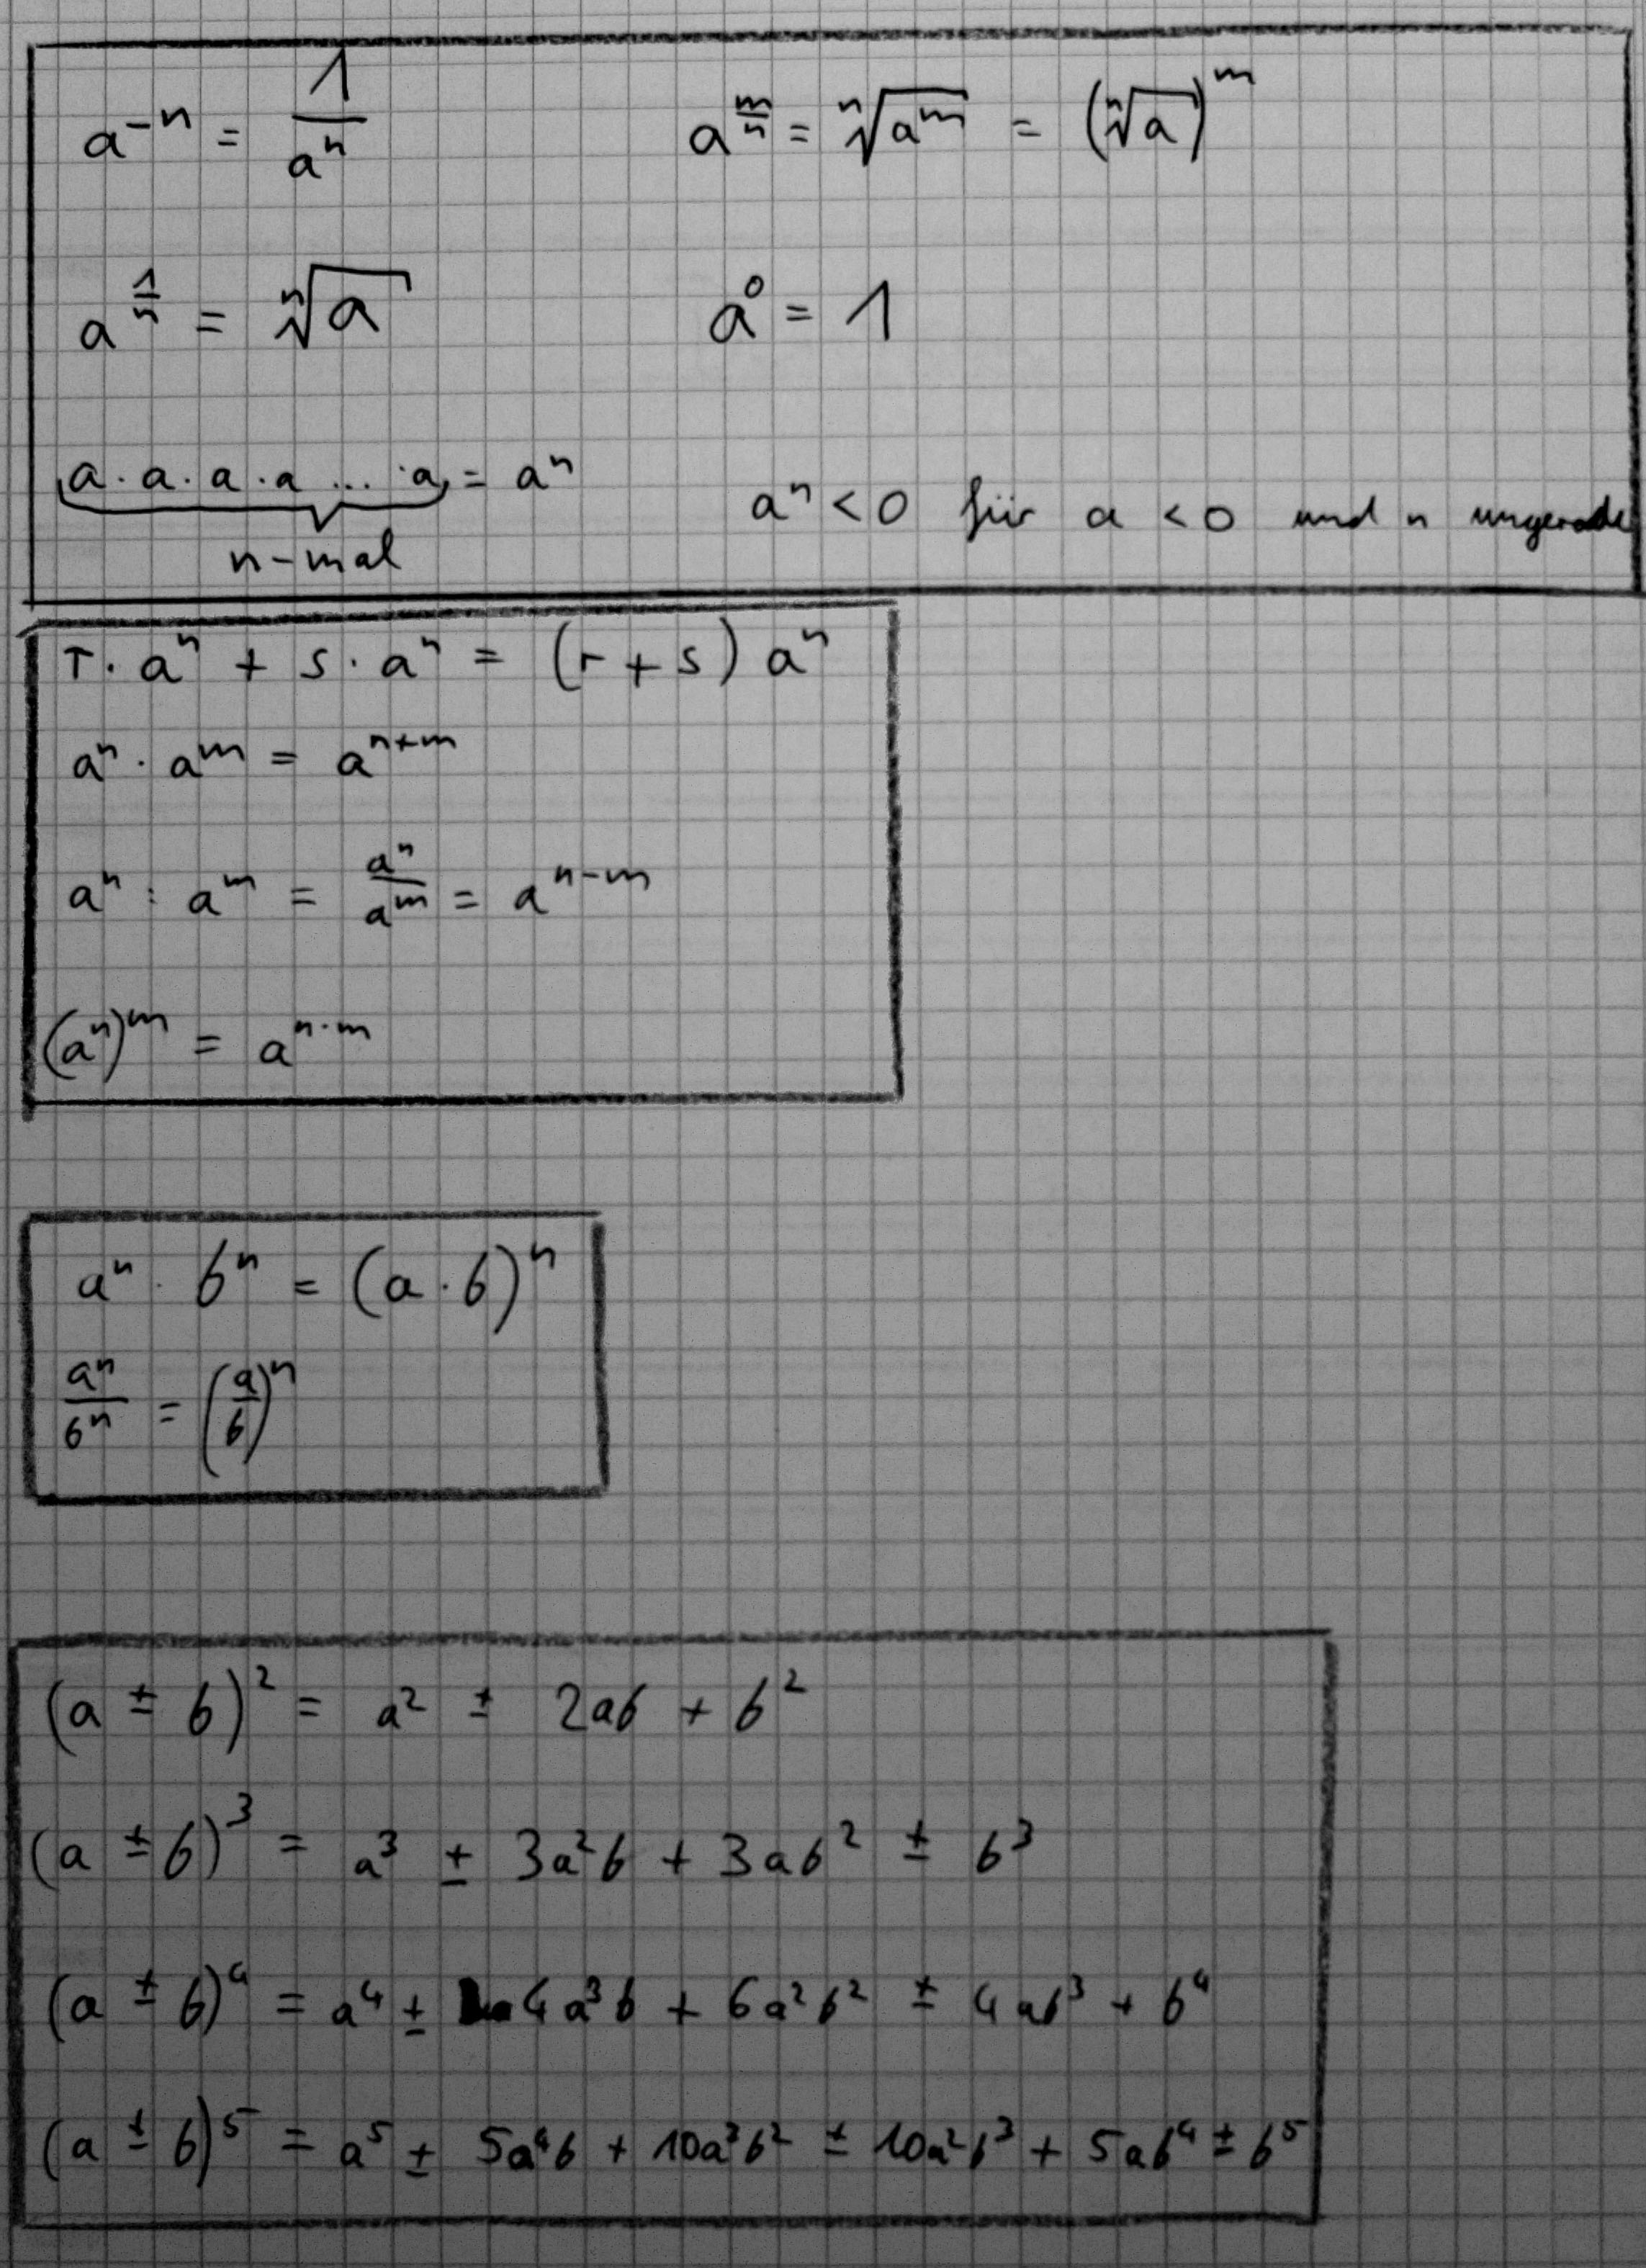 a^{-n} = \frac{1}{a^n}    a^{\frac{m}{n}} = \sqrt[n]{a^m} = (\sqrt[n]{a})^m
a^{\frac{1}{n}} = \sqrt[n]{a}    a^0 = 1
a · a · a · a ... · a = a^n    a^n < 0 für a < 0 und n ungerade
n-mal
r · a^n + s · a^n = (r + s) a^n
a^n · a^m = a^{n+m}
a^n : a^m = \frac{a^n}{a^m} = a^{n-m}
(a^n)^m = a^{n·m}
a^n · b^n = (a · b)^n
\frac{a^n}{b^n} = (\frac{a}{b})^n
(a ± b)^2 = a^2 ± 2ab + b^2
(a ± b)^3 = a^3 ± 3a^2b + 3ab^2 ± b^3
(a ± b)^4 = a^4 ± 4a^3b + 6a^2b^2 ± 4ab^3 + b^4
(a ± b)^5 = a^5 ± 5a^4b + 10a^3b^2 ± 10a^2b^3 + 5ab^4 ± b^5